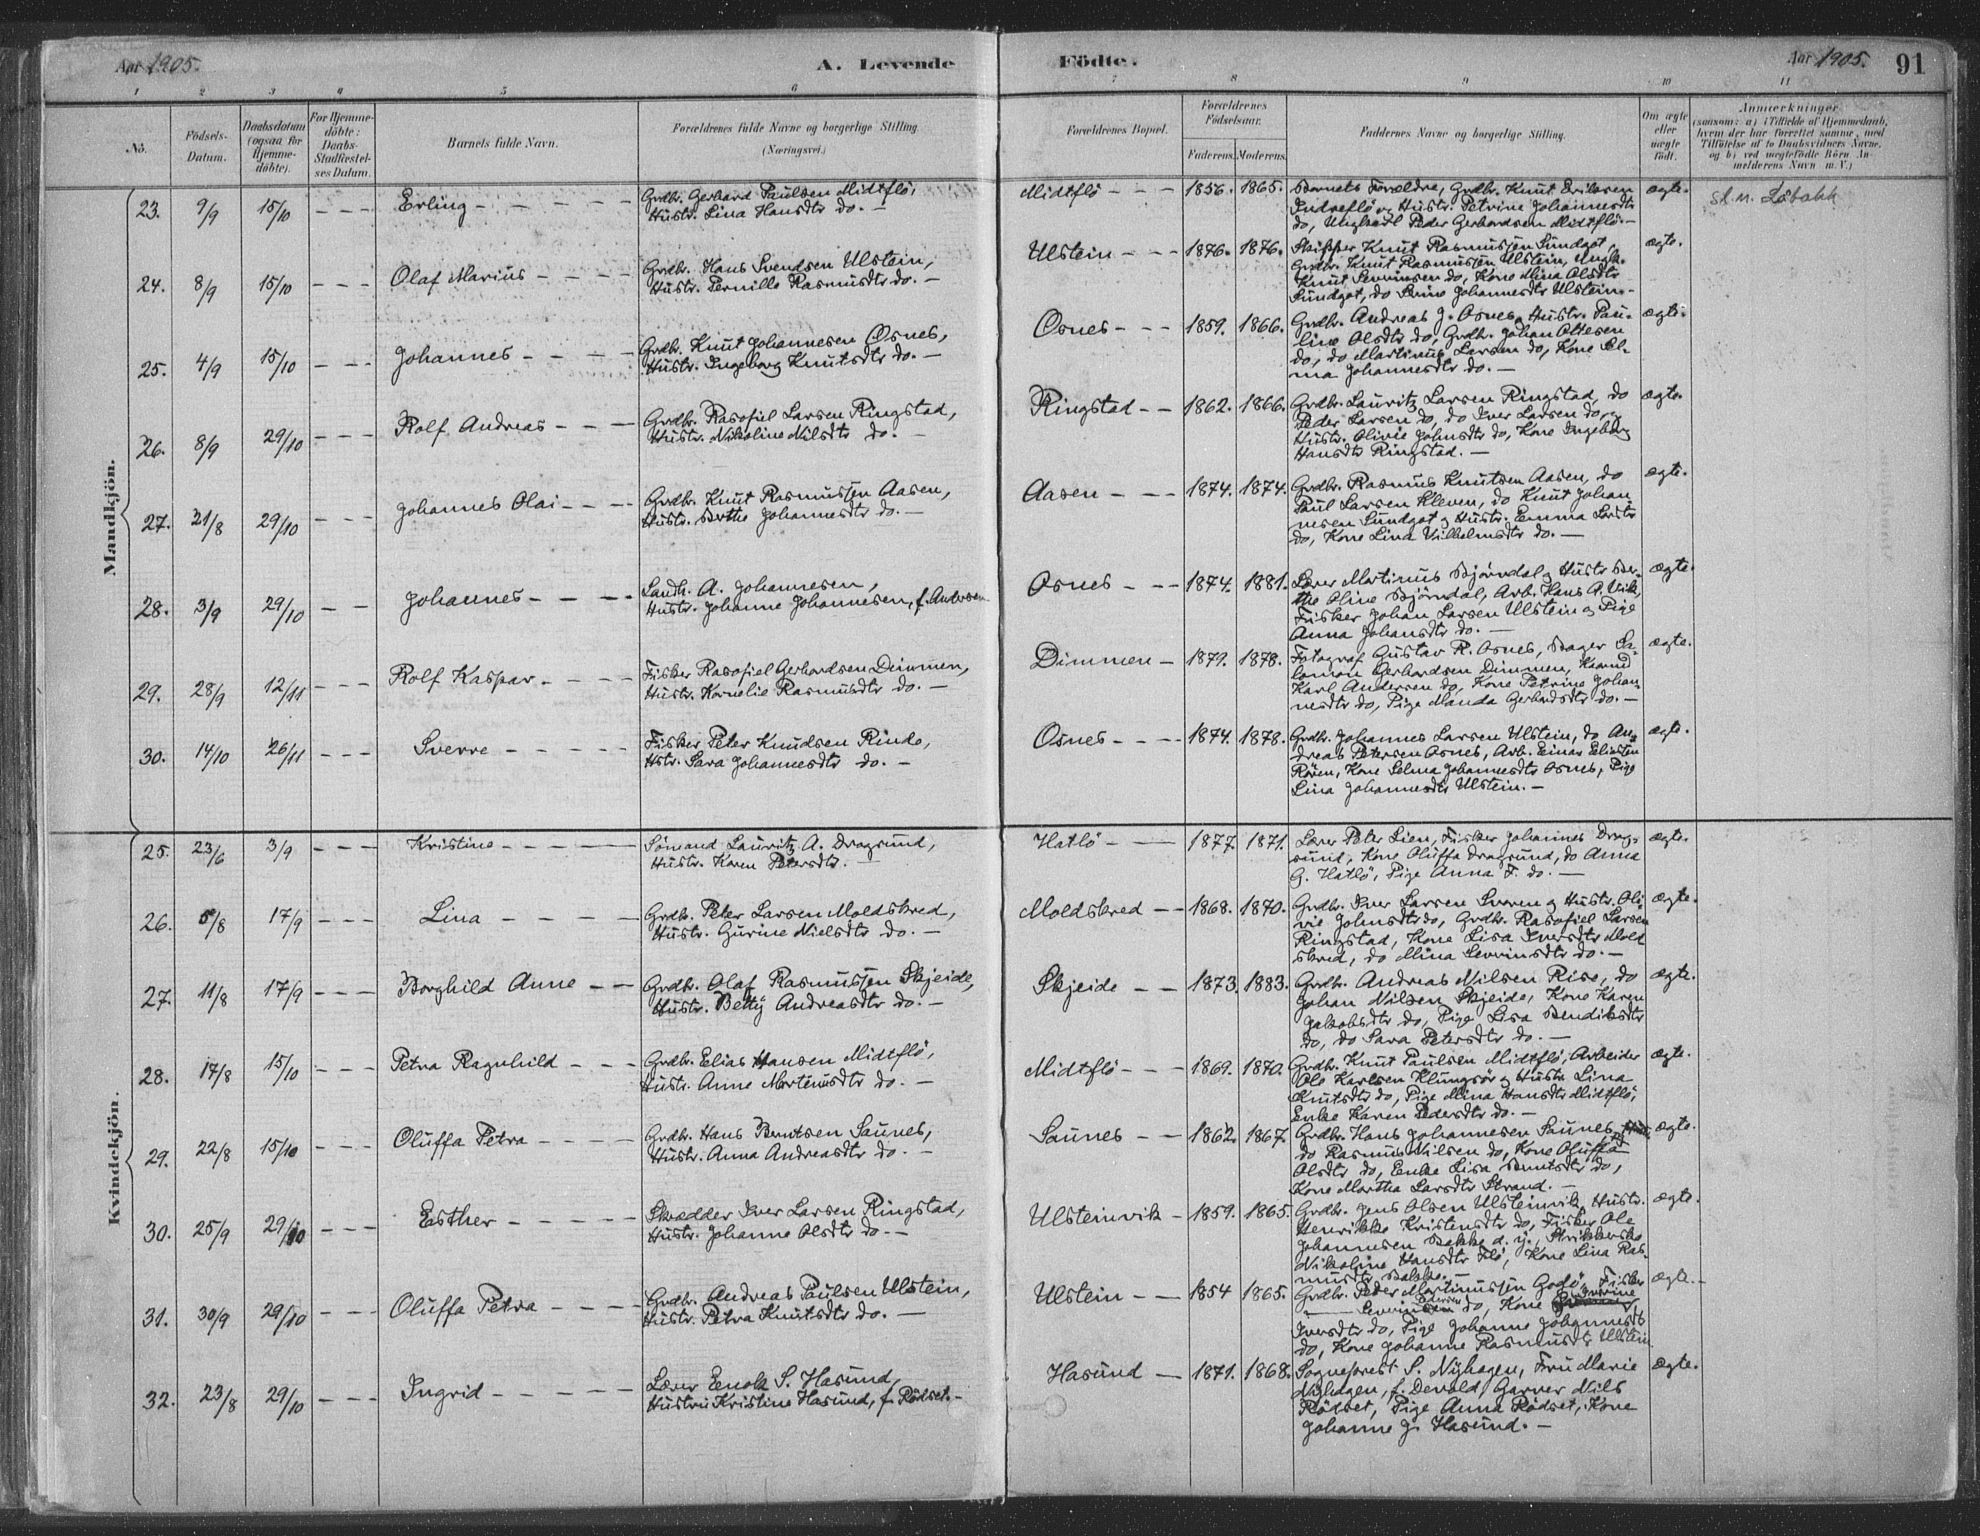 Aar 1905.
A. Levende Födte.
Aar 1905. 91
1 2 3 4 5 6 7 8 9 10 11
No.
Födsels-
Datum.
Daabsdatum
(ogsaa for
Hjemme-
döbte).
For Hjemme-
döbte:
Daabs-
Stadfæstel-
ses Datum.
Barnets fulde Navn.
Forældrenes fulde Navne og borgerlige Stilling.
(Næringsvei.)
Forældrenes Bopæl.
Forældrenes
Födselsaar.
Faderens. Moderens.
Faddernes Navne og borgerlige Stilling.
Om ægte
eller
uægte
födt.
Anmærkninger
(saasom: a) i Tilfælde af Hjemmedaab,
hvem der har forrettet samme, med
Tilföielse af to Daabsvidners Navne,
og b) ved uægtefödte Börn An-
melderens Navn m. V.)
Mandkjön.
23. 9/9 15/10 - - - Erling - - - - -
Grdbr. Gerhard Paulsen Midtflö,
Hustr. Lina Hansdtr do. -
Midtflö - - - 1856. 1865.
Barnets Forældre, Grdbr. Knut Eriksen
Indreflö og Hustr. Petrine Johannesdtr
do, Ungkarl Peder Gerhardsen Midtflö. -
ægte.
24. 8/9 15/10 - - - Olaf Marius - - - -
Grdbr. Hans Svendsen Ulstein,
Hustr. Pernille Rasmusdtr do. -
Ulstein - - - 1876. 1876.
Skipper Knut Rasmussen Sundgot,
Grdbr. Knut Rasmussen Ulstein, Ungk.
Knut Severinsen do, Kone Mina Olsdtr
Sundgot, do Johannesdtr Ulstein -
ægte.
25. 4/9 15/10 - - - Johannes - - - -
Grdbr. Knut Johannesen Osnes,
Hustr. Ingeborg Knutsdtr do. -
Osnes - - - 1859. 1866.
Grdbr. Andreas J. Osnes, Hustr. Pau-
line Olsdtr do, Grdbr. Johan Ottesen
do, do Martinus Larsen do, Kone Sel-
ma Johannesdtr do. -
ægte.
26. 8/9 29/10 - - - Rolf Andreas - - -
Grdbr. Rasofiel Larsen Ringstad,
Hustr. Nikoline Nilsdtr do. -
Ringstad - - 1862. 1866.
Grdbr. Lauritz Larsen Ringstad, do
Peder Larsen do, do Iver Larsen do og
Hustr. Olivie Johnsdtr do, Kone Ingeborg
Hansdtr Ringstad. -
ægte.
27. 21/8 29/10 - - - Johannes Olai - - -
Grdbr. Knut Rasmussen Aasen,
Hustr. Berthe Johannesdtr do. -
Aasen - - - 1874. 1874.
Grdbr. Rasmus Knutsen Aasen, do
Paul Larsen Kleven, do Knut Johan
nesen Sundgot og Hustr. Emma Larsdtr
do, Kone Lina Vilhelmsdtr do. -
ægte.
28. 3/9 29/10 - - Johannes - - - -
Landh. A. Johannesen,
Hustr. Johanne Johannesen, f. Andersen
Osnes - - - 1874. 1881.
Lærer Martinus Bjørndal og Hustr. Ber-
the Oline Bjørndal, Arb. Hans A. Vik,
Fisker Johan Larsen Ulstein og Pige
Anna Johansdtr do. -
ægte.
29. 28/9 12/11 - - - Rolf Kaspar - - - -
Fisker Rasofiel Gerhardsen Dimmen,
Hustr. Kornelie Rasmusdtr do. -
Dimmen - 1879. 1878.
Fotograf Gustav R. Osnes, Bager Sa-
lomon Gerhardsen Dimmen,
Karl Andersen do, Kone Petrine Johan-
nesdtr do, Pige Manda Gerhardsdtr do. -
ægte.
30. 14/10 26/11 - - - Sverre - - - - -
Fisker Peter Knudsen Rinde,
Hstr. Sara Johannesdtr do. -
Osnes - - - 1874. 1878.
Grdbr. Johannes Larsen Ulstein, do An-
dreas Petersen Osnes, Arb. Einar Eliassen
Rören, Kone Selma Johannesdtr Osnes, Pige
Lina Johannesdtr Ulstein. -
ægte.
Kvindekjön.
25. 23/6 3/9 - - - Kristine - - - -
Sömand Lauritz A. Dragsund,
Hustr. Karen Petersdtr. -
Hatlö - - 1877. 1871.
Lærer Peter Lien, Fisker Johannes Drag-
sund, Kone Oluffa Dragsund, do Anna
G. Hatlö, Pige Anna F. do. -
ægte.
26. 5/8 17/9 - - - Lina - - - -
Grdbr. Peter Larsen Moldskred,
Hustr. Gurine Nielsdtr do. -
Moldskred - - 1868. 1870.
Grdbr. Iver Larsen Sveren og Hustr. Oli-
vie Johnsdtr do, Grdbr. Rasofiel Larsen
Ringstad, Kone Lisa Iversdtr Mold
skred, do Mina Severinsdtr do. -
ægte.
27. 11/8 17/9 - - - Borghild Anne - -
Grdbr. Olaf Rasmussen Skjeide,
Hustr. Betty Andreasdtr do. -
Skjeide - - 1873. 1883.
Grdbr. Andreas Nilsen Rise, do
Johan Nilsen Skjeide, Kone Karen
Jakobsdtr do, Pige Lisa Bendiksdtr
do, do Sara Petersdtr do. -
ægte.
28. 17/8 15/10 - - - Petra Ragnhild - - -
Grdbr. Elias Hansen Midtflö,
Hustr. Anne Martinusdtr do. -
Midtflö - - - 1869. 1870.
Grdbr. Knut Paulsen Midtflö, Arbeider
Ole Karlsen Klungsör og Hustr. Lina
Knutsdtr do, Pige Mina Hansdtr Midtflö,
Enke Karen Pedersdtr do. -
ægte.
29. 22/8 15/10 - - - Oluffa Petra - - - -
Grdbr. Hans Berntsen Saunes,
Hustr. Anna Andreasdtr do. -
Saunes - - 1862. 1867.
Grdbr. Hans Johannesen Saunes,
do Rasmus Nilsen do, Kone Oluffa
Olsdtr do, Enke Lisa Berntsdtr do,
Kone Martha Larsdtr Strand. -
ægte.
30. 25/9 29/10 - - - Easther - - - - -
Skrædder Iver Larsen Ringstad,
Hustr. Johanne Olsdtr do. -
Ulsteinvik - 1859. 1865.
Grdbr. Jens Olsen Ulsteinvik, Hustr.
Henrikke Kristensdtr do, Fisker Ole
Johannesen Bakke d. y., Strikkerske
Nikoline Hansdtr Flö, Kone Lina Ras-
musdtr Bakke. -
ægte.
31. 30/9 29/10 - - - Oluffa Petra - - - -
Grdbr. Andreas Paulsen Ulstein,
Hustr. Petra Knutsdtr do. -
Ulstein - - 1854 1865.
Grdbr. Peder Martinussen Godö, Fisker
Severin Pedersen do, Kone Severine
Iversdtr do, Pige Johanne Johannesdtr
do, Kone Johanne Rasmusdtr Ulstein
ægte. -
32. 23/8 29/10 - - - Ingrid - - - - -
Lærer Enok S. Hasund,
Hustru Kristine Hasund, f. Rödset. -
Hasund - 1871. 1868.
Sogneprest S. Nyhagen, Fru Marie
Nyhagen, f. Devold, Garver Nils
Rödset, Pige Anna Rödset, Kone
Johanne J. Hasund. -
ægte.